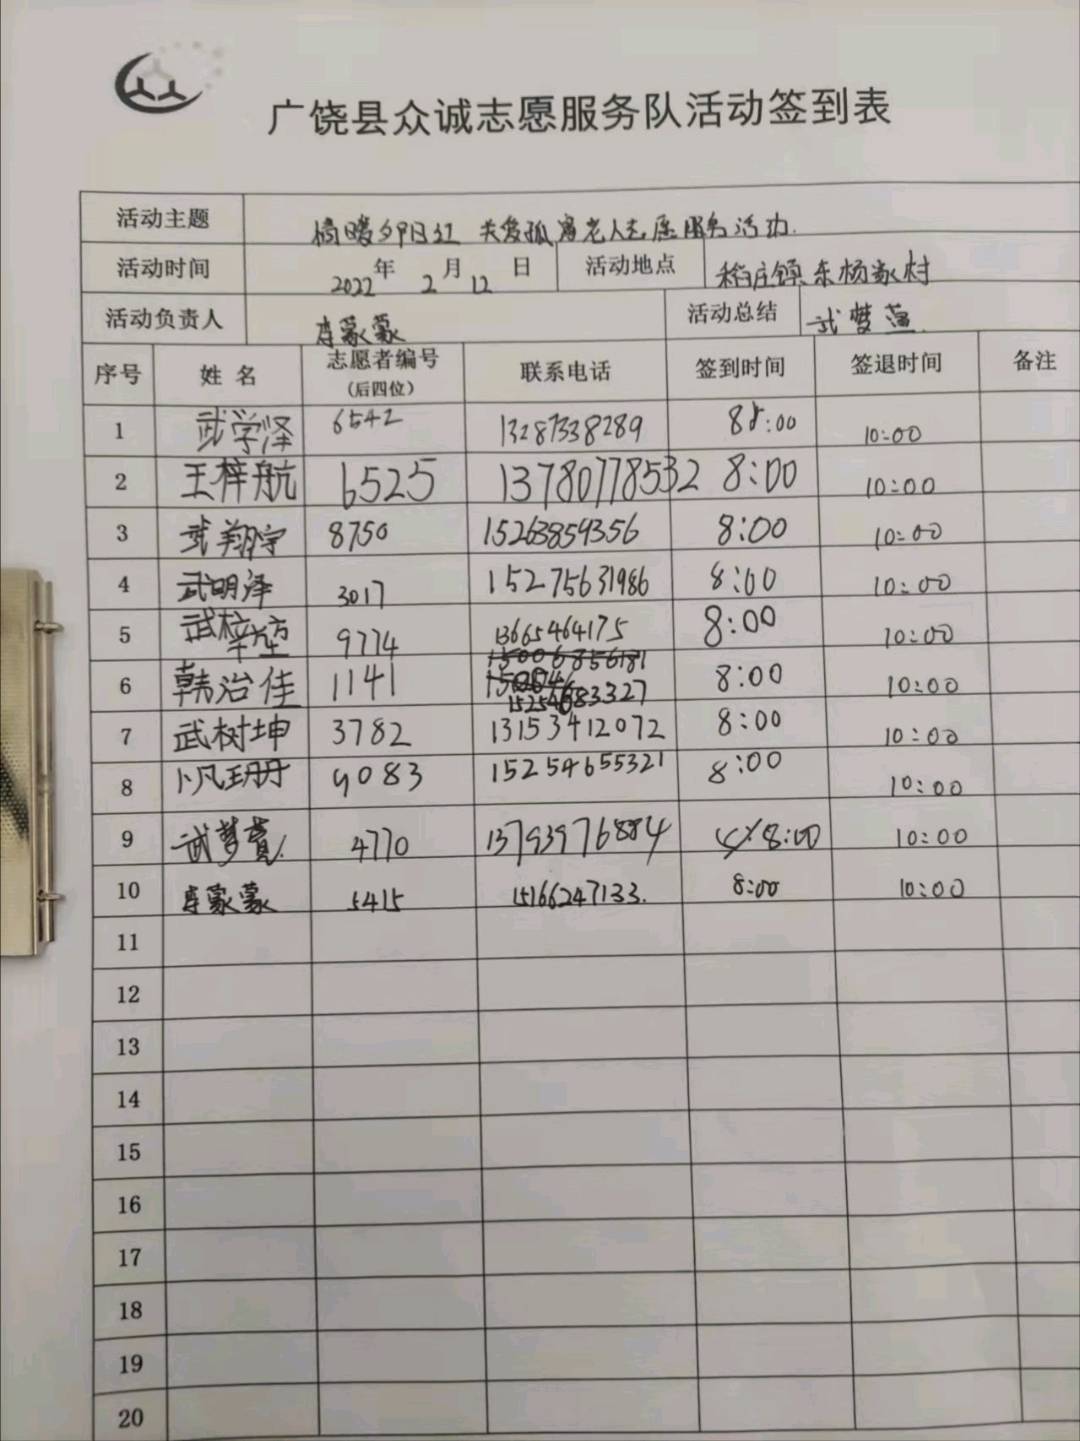 广饶县众诚志愿服务队活动签到表
活动主题 情暖夕阳红 关爱孤寡老人志愿服务活动.
活动时间 2022年 2月 12日 活动地点 稻庄镇东杨家村
活动负责人 李蒙蒙 活动总结 武梦
序号 姓名 志愿者编号 联系电话 签到时间 签退时间 备注
(后四位)
1 武学泽 6542 13287338289 8:00 10:00
2 王梓航 6525 13780778532 8:00 10:00
3 武翔宇 8750 15263859356 8:00 10:00
4 武明泽 3017 15275631986 8:00 10:00
5 武梓 9774 13665464175 8:00 10:00
6 韩治佳 1141 15254683327 8:00 10:00
7 武树坤 3782 13153412072 8:00 10:00
8 9083 15254655321 8:00 10:00
9 武梦 4770 13793976884 8:00 10:00
10 李蒙蒙 5415 15166247133. 8:00 10:00
11
12
13
14
15
16
17
18
19
20